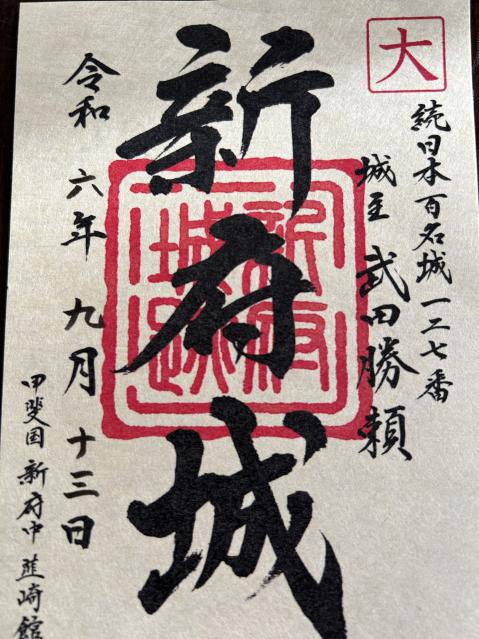 大
続日本百名城一二七番
城主 武田勝頼
新府城
新府城跡
令和 六年 九月 十三日
甲斐国 新府中 韮崎館